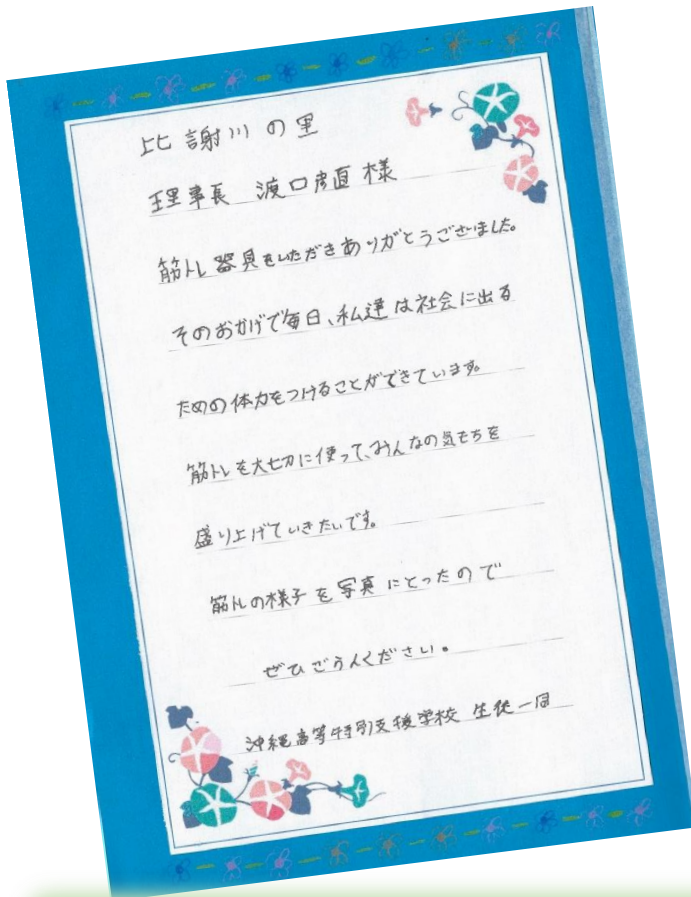 比謝川の里
理事長 渡口彦直様
筋トレ器具をいただきありがとうございました。
そのおかげで毎日、私達は社会に出る
ための体力をつけることができています。
筋トレを大切に使って、みんなの気もちを
盛り上げていきたいです。
筋トレの様子を写真にとったので
ぜひごらんください。
沖縄高等特別支援学校 生徒一同